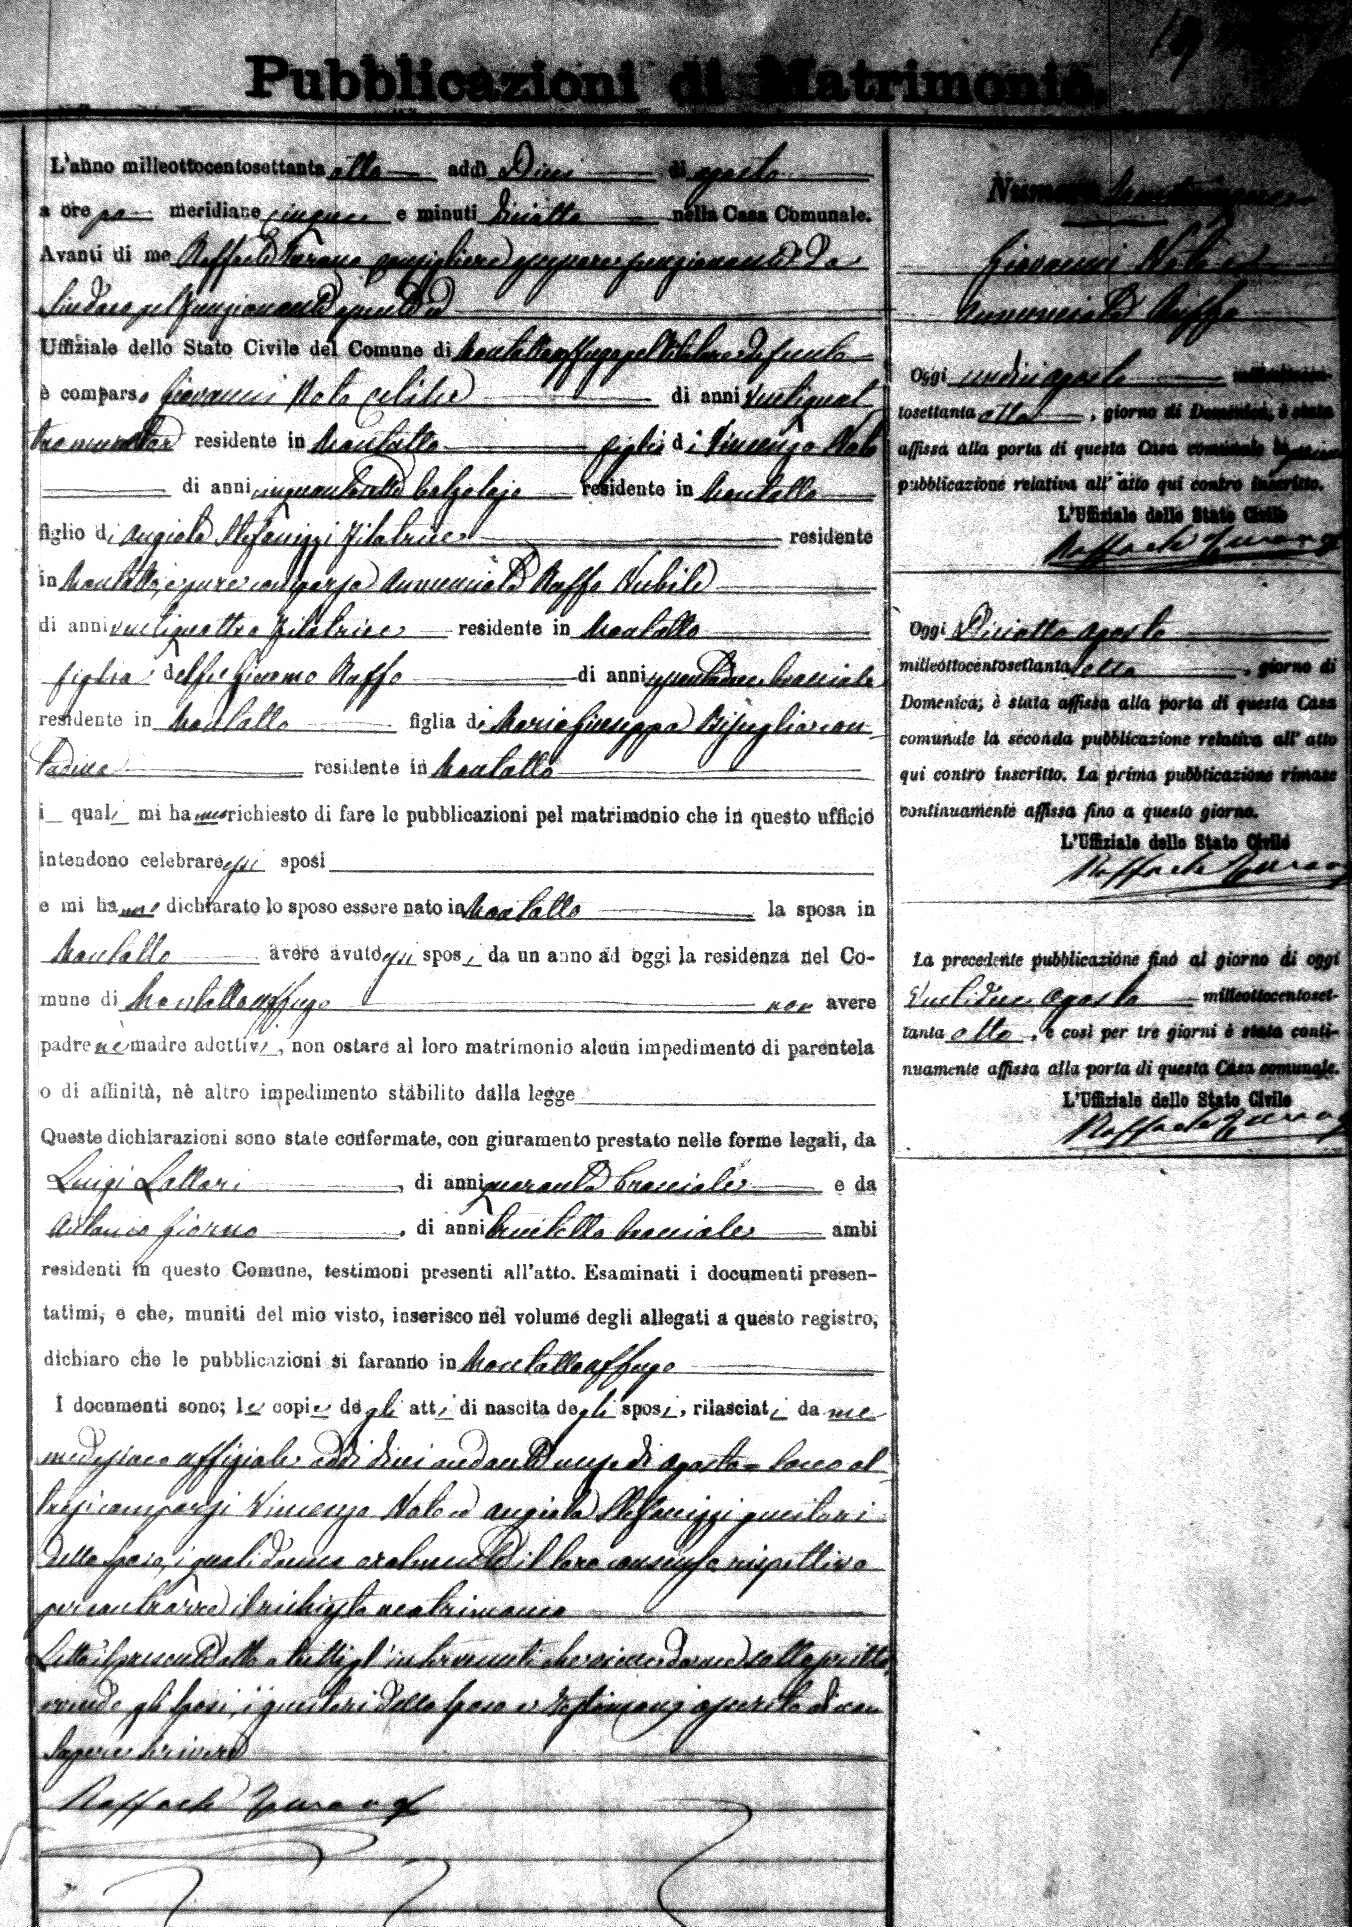 19
Pubblicazioni di Matrimonio.
L'anno milleottocentosettanta otto addì Dieci di agosto
a ore po meridiane cinque e minuti diciotto nella Casa Comunale.
Avanti di me Raffaele Turano consigliere funzionante da
Sindaco
Uffiziale dello Stato Civile del Comune di Montaltouffugo pel titolare defunto
è comparso Giovanni Noto celibe di anni ventiquat
tro residente in Montalto figlio di Vincenzo Noto
di anni cinquantotto calzolajo residente in Montalto
figlio di Angiola Stefanizzi filatrice residente
in Montalto, è pure comparsa Annunciata Ruffo Nubile
di anni ventiquattro filatrice residente in Montalto
figlia del fu Giacomo Ruffo di anni bracciale
residente in Montalto figlia di Maria Giuseppa Bisuglia con
tadina residente in Montalto
i quali mi hanno richiesto di fare le pubblicazioni pel matrimonio che in questo ufficio
intendono celebrare essi sposi
e mi hanno dichiarato lo sposo essere nato in Montalto la sposa in
Montalto avere avuto gli sposi da un anno ad oggi la residenza nel Co-
mune di Montaltouffugo non avere
padre nè madre adottivi, non ostare al loro matrimonio alcun impedimento di parentela
o di affinità, nè altro impedimento stabilito dalla legge
Queste dichiarazioni sono state confermate, con giuramento prestato nelle forme legali, da
Luigi Lattari, di anni quaranta bracciale e da
Antonio Giorno, di anni trentotto bracciale ambi
residenti in questo Comune, testimoni presenti all'atto. Esaminati i documenti presen-
tatimi, e che, muniti del mio visto, inserisco nel volume degli allegati a questo registro,
dichiaro che le pubblicazioni si faranno in Montaltouffugo
I documenti sono; le copie degli atti di nascita degli sposi, rilasciati da me
medesimo uffiziale addi dieci andante mese di agosto = Sono al
tresi comparsi Vincenzo Noto ed Angiola Stefanizzi genitori
dello sposo, i quali danno oralmente il loro consenso rispettivo
per contrarre il richiesto matrimonio
Letto il presente atto a tutti gl'intervenuti
gli sposi, i genitori dello sposo e testimoni asserito di non
sapere scrivere
Raffaele Turano
Numero
Giovanni Noto e
Annunciata Ruffo
Oggi undici agosto milleottocen-
tosettanta otto, giorno di Domenica, è stata
affissa alla porta di questa Casa comunale la prima
pubblicazione relativa all'atto qui contro inscritto.
L'Uffiziale dello Stato Civile
Raffaele Turano
Oggi Diciotto agosto
milleottocentosettanta otto, giorno di
Domenica, è stata affissa alla porta di questa Casa
comunale la seconda pubblicazione relativa all'atto
qui contro inscritto. La prima pubblicazione rimase
continuamente affissa fino a questo giorno.
L'Uffiziale dello Stato Civile
Raffaele Turano
La precedente pubblicazione fino al giorno di oggi
Ventidue agosto milleottocentoset-
tanta otto, e così per tre giorni è stata conti-
nuamente affissa alla porta di questa Casa comunale.
L'Uffiziale dello Stato Civile
Raffaele Turano